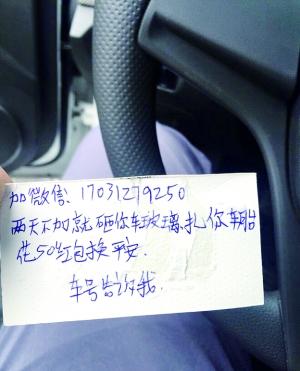 加微信：17031279250
两天不加就砸你车玻璃、扎你车胎
花50红包换平安.
车号告诉我.